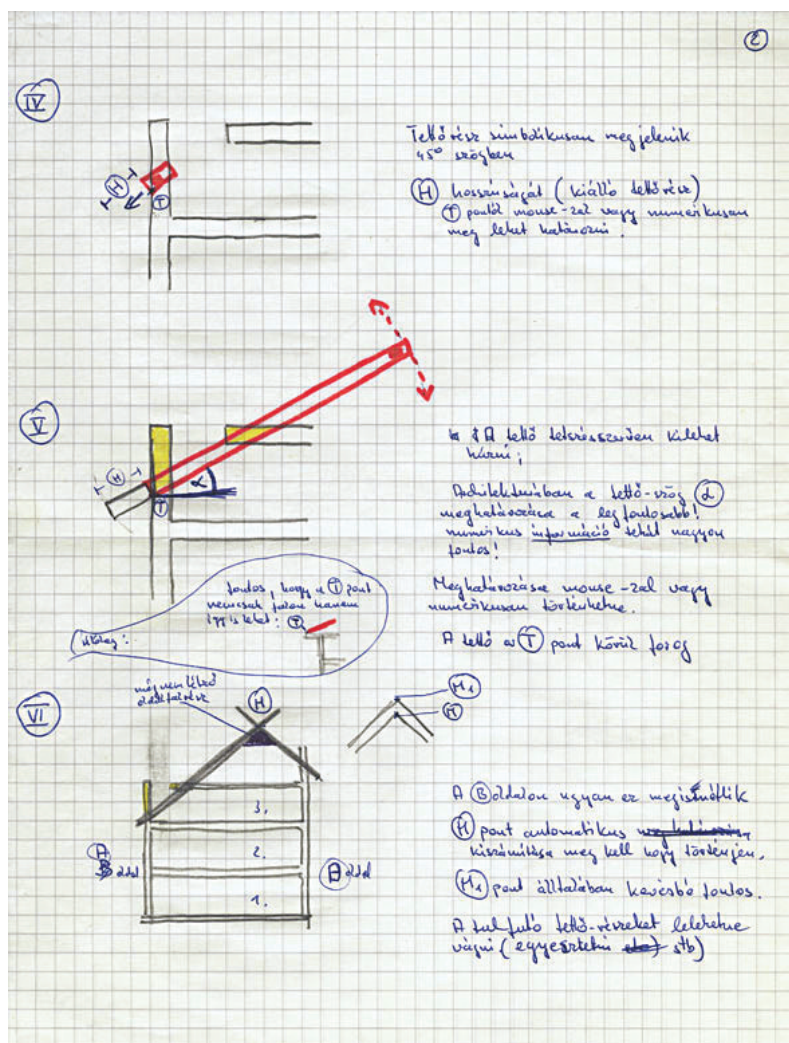 2
IV
Tetőrész simbolikusan megjelenik
45° szögben
H hosszúságát (kiálló tetőrész)
T pontól mouse-zal vagy numérikusan
meg lehet határozni.
H
T
V
A tető tetsrésszerűen kilehet
húzni;
Architektúrában a tető-szög α
meghatározása a legfontosabb!
numérikus információ tehát nagyon
fontos!
Meghatározása mouse-zal vagy
numérikusan történhetne.
A tető a T pont körül forog
H
T
α
fontos, hogy a T pont
nemcsak falon hanem
így is lehet: T
VI
még nem létező
oldalfalrész
H
H1
H
3.
2.
1.
A oldal
B oldal
A B oldalon ugyan ez megismétlik
H pont automatikus
kiszámítása meg kell hogy történjen.
H1 pont álltalában kevésbé fontos.
A tulfutó tető-részeket lelehetne
vágni (egyesztetni stb)